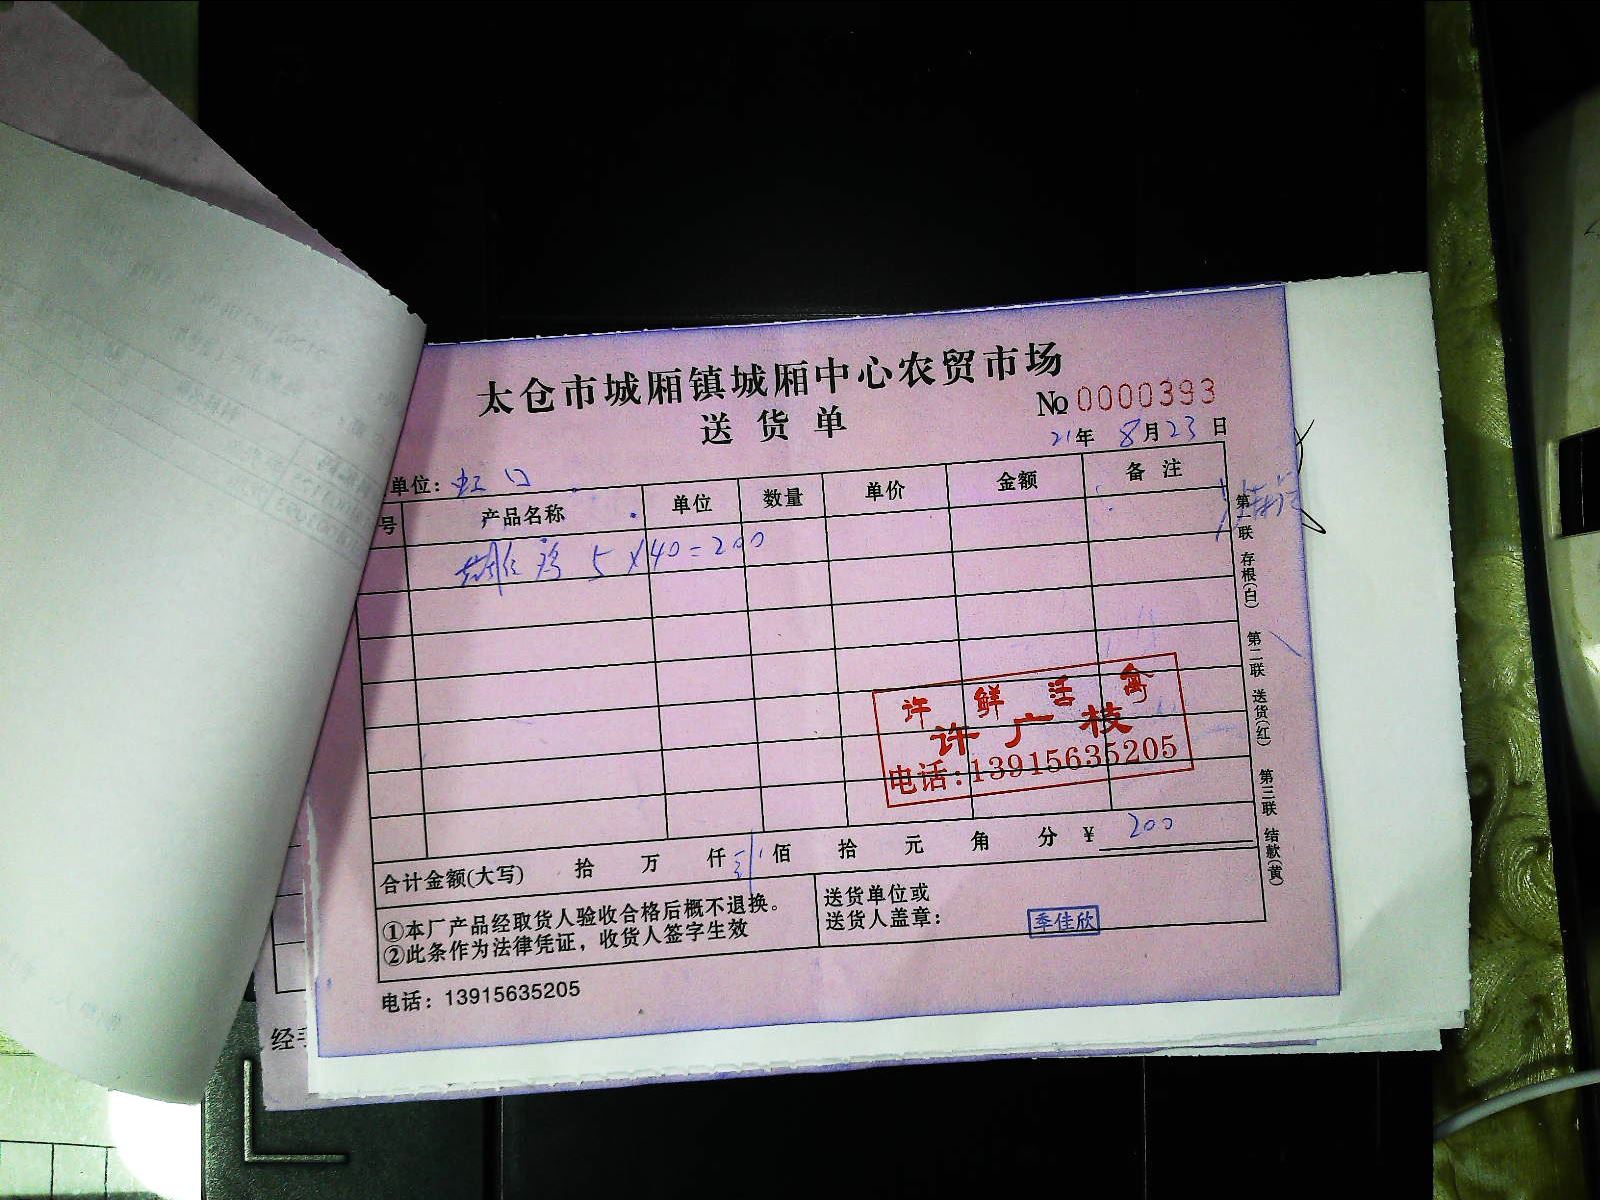 太仓市城厢镇城厢中心农贸市场
送货单
№ 0000393
21年 8月23日
单位：虹口
号 产品名称 单位 数量 单价 金额 备注
5×40=200
许 鲜 活 禽
许广枝
电话：13915635205
合计金额(大写) 拾 万 仟 佰 拾 元 角 分 ¥ 200
①本厂产品经取货人验收合格后概不退换。
②此条作为法律凭证，收货人签字生效
送货单位或
送货人盖章：
季佳欣
电话：13915635205
第一联 存根(白) 第二联 送货(红) 第三联 结款(黄)
经手